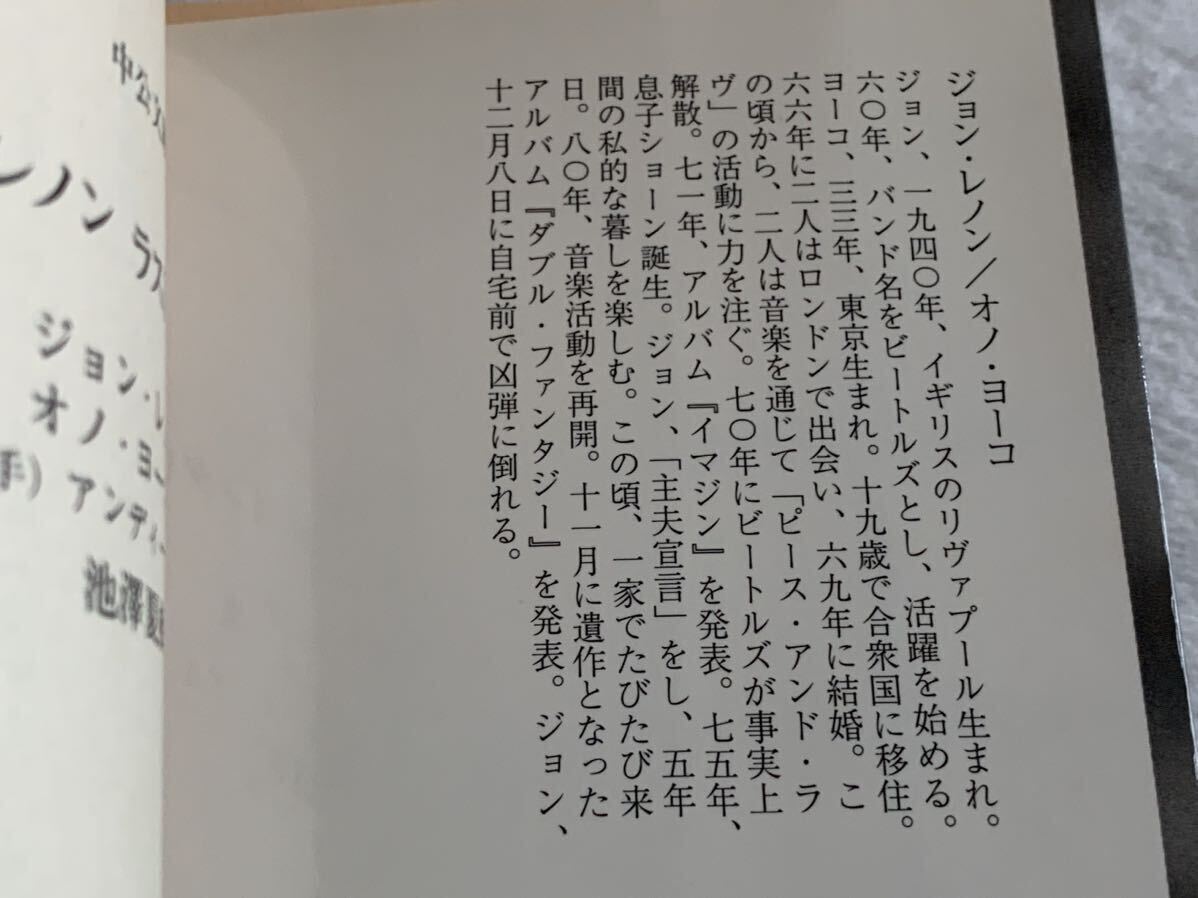 ジョン・レノン／オノ・ヨーコ
ジョン、一九四〇年、イギリスのリヴァプール生まれ。
六〇年、バンド名をビートルズとし、活躍を始める。
ヨーコ、三三年、東京生まれ。十九歳で合衆国に移住。
六六年に二人はロンドンで出会い、六九年に結婚。こ
の頃から、二人は音楽を通じて「ピース・アンド・ラ
ヴ」の活動に力を注ぐ。七〇年にビートルズが事実上
解散。七一年、アルバム『イマジン』を発表。七五年、
息子ショーン誕生。ジョン、「主夫宣言」をし、五年
間の私的な暮しを楽しむ。この頃、一家でたびたび来
日。八〇年、音楽活動を再開。十一月に遺作となった
アルバム『ダブル・ファンタジー』を発表。ジョン、
十二月八日に自宅前で凶弾に倒れる。
中公文
レノン ラス
ジョン・レ
オノ・ヨー
手）アンディー
池澤夏